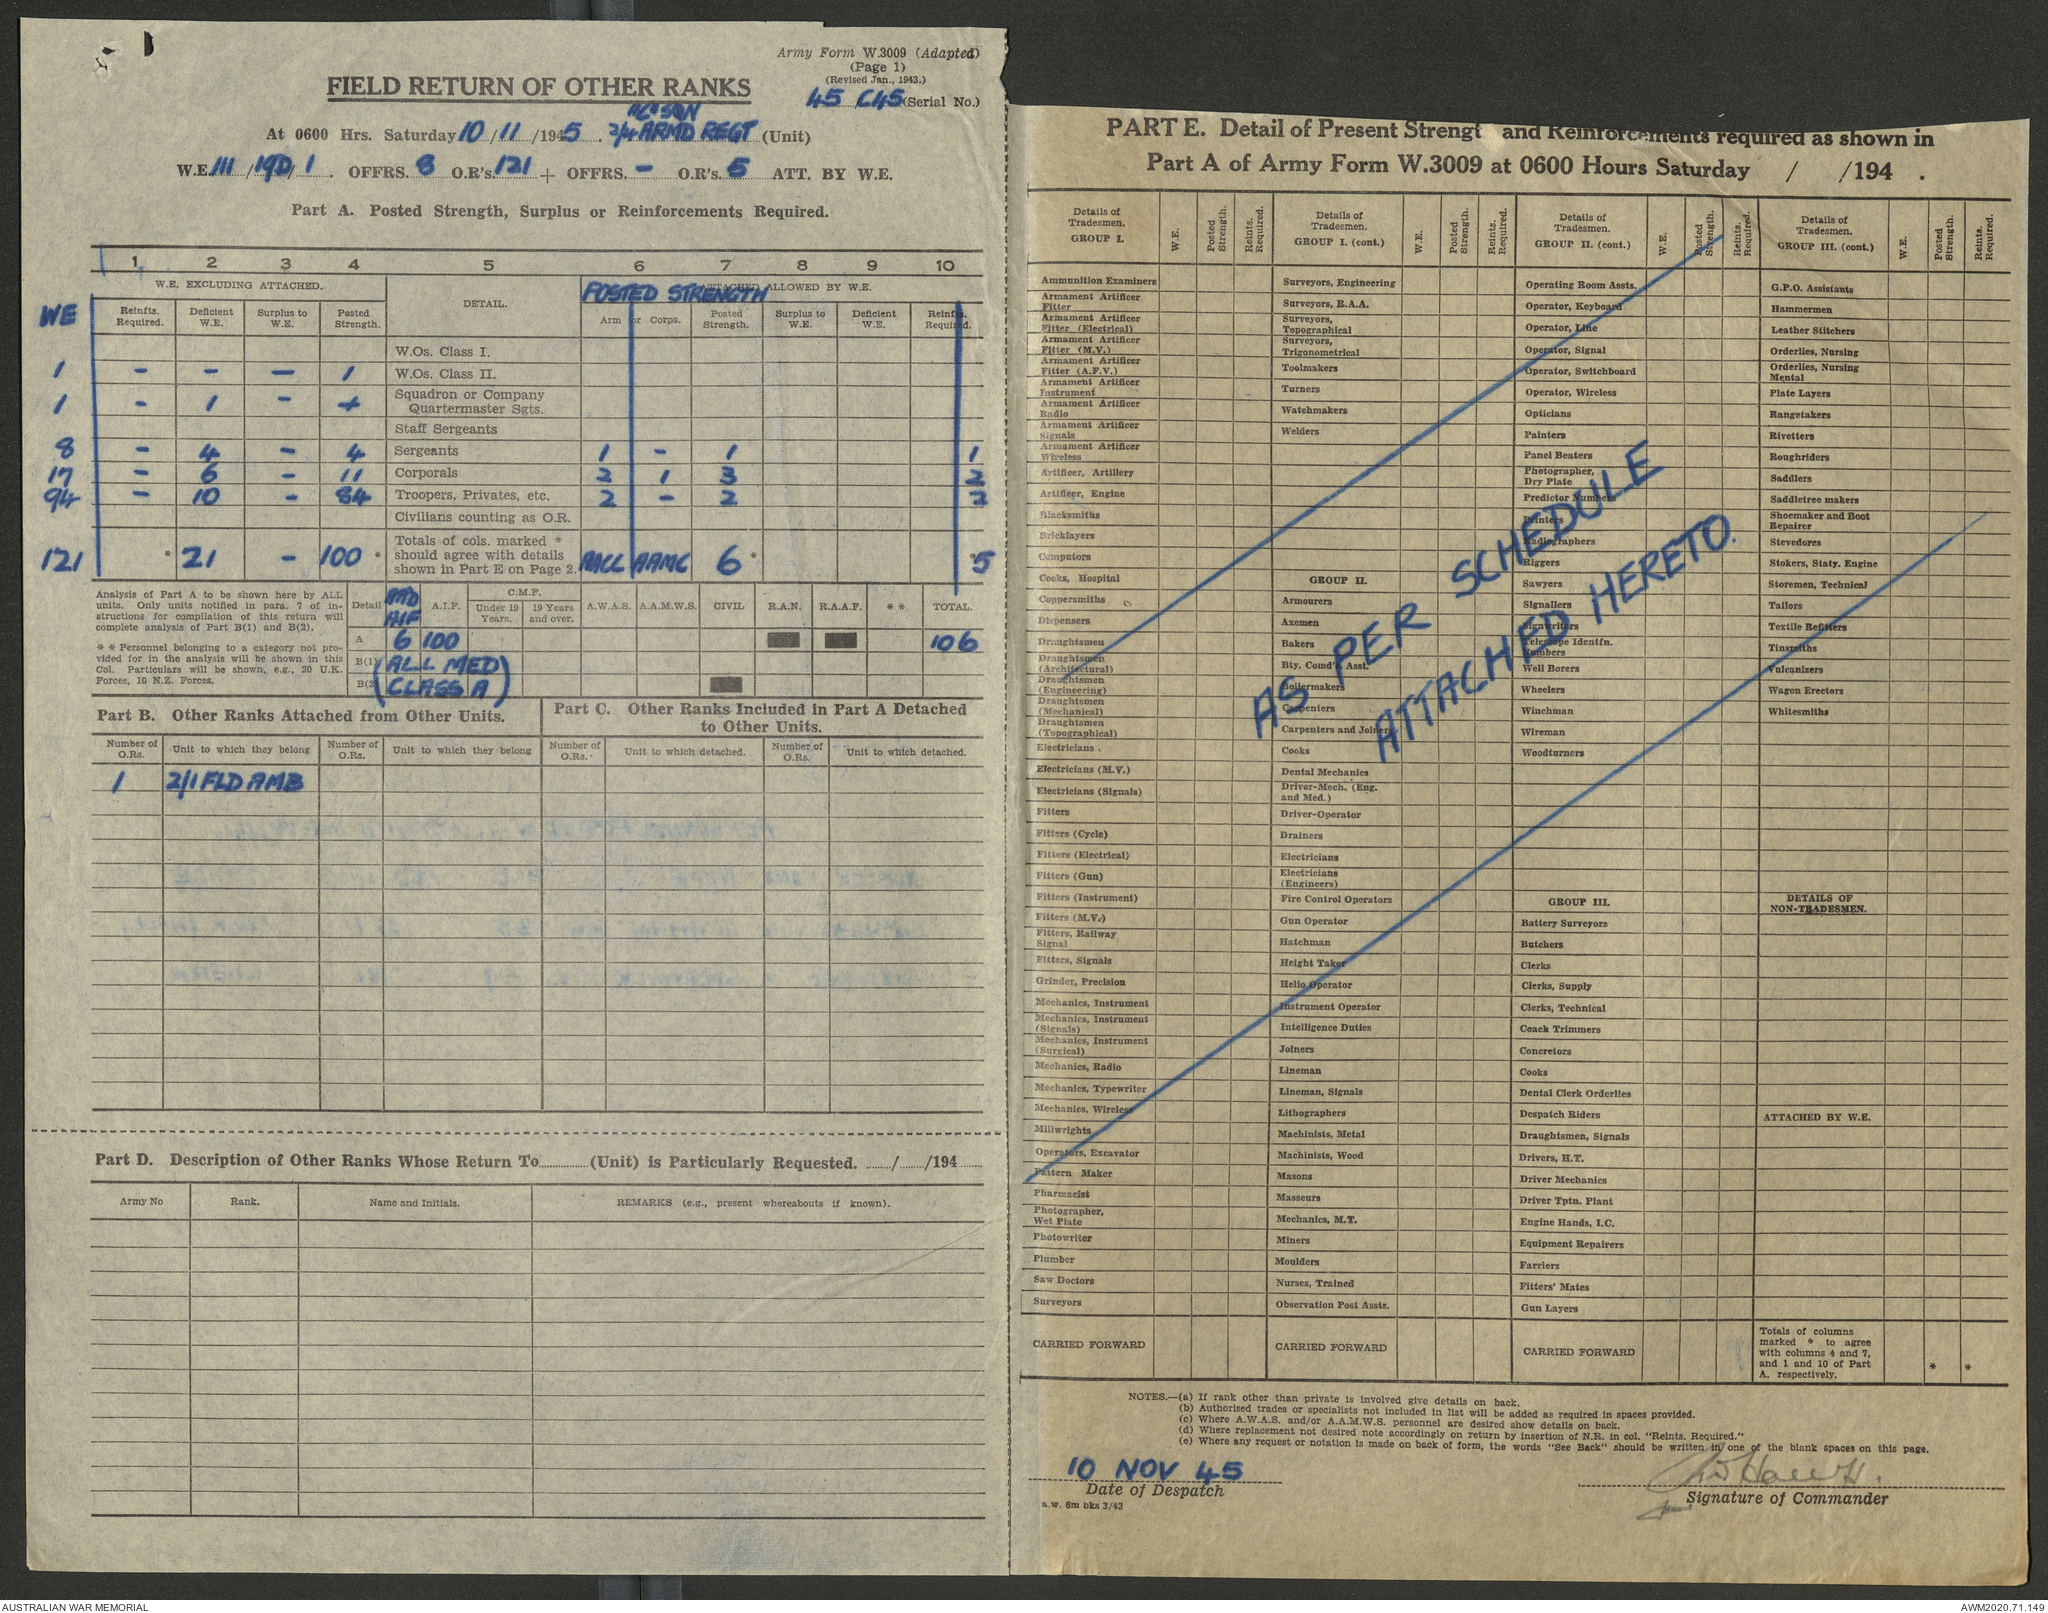 Army Form W.3009 (Adapted)
(Page 1)
(Revised Jan., 1943.)
FIELD RETURN OF OTHER RANKS
45 /C45 (Serial No.)
At 0600 Hrs. Saturday 10/11/1945. 2/4 ARMD REGT (Unit)
W.E. III/19D/1. OFFRS. 8 O.R's. 121 + OFFRS. – O.R's. 5 ATT. BY W.E.
Part A. Posted Strength, Surplus or Reinforcements Required.
1 2 3 4 5 6 7 8 9 10
W.E. EXCLUDING ATTACHED. DETAIL. ATTACHED ALLOWED BY W.E.
POSTED STRENGTH
WE Reinfts. Required. Deficient W.E. Surplus to W.E. Posted Strength. Arm or Corps. Posted Strength. Surplus to W.E. Deficient W.E. Reinfts. Required.
W.Os. Class I.
1 – – – 1 W.Os. Class II.
1 – 1 – Squadron or Company Quartermaster Sgts.
Staff Sergeants
8 – 4 – 4 Sergeants 1 – 1 1
17 – 6 – 11 Corporals 2 1 3 2
94 – 10 – 84 Troopers, Privates, etc. 2 – 2 2
Civilians counting as O.R.
121 * 21 – 100 * Totals of cols. marked * should agree with details shown in Part E on Page 2. AACC AAMC 6 * * 5
Analysis of Part A to be shown here by ALL units. Only units notified in para. 7 of instructions for compilation of this return will complete analysis of Part B(1) and B(2).
* * Personnel belonging to a category not provided for in the analysis will be shown in this Col. Particulars will be shown, e.g., 20 U.K. Forces, 10 N.Z. Forces.
Detail ATTD AIF A.I.F. C.M.F. Under 19 Years. 19 Years and over. A.W.A.S. A.A.M.W.S. CIVIL R.A.N. R.A.A.F. * * TOTAL.
A 6 100 106
B(1) (ALL MED
B(2 CLASS A)
Part B. Other Ranks Attached from Other Units.
Part C. Other Ranks Included in Part A Detached to Other Units.
Number of O.Rs. Unit to which they belong Number of O.Rs. Unit to which they belong Number of O.Rs. Unit to which detached. Number of O.Rs. Unit to which detached.
1 2/1 FLD AMB
Part D. Description of Other Ranks Whose Return To............(Unit) is Particularly Requested. ....../....../194......
Army No Rank. Name and Initials. REMARKS (e.g., present whereabouts if known).
PART E. Detail of Present Strengt and Reinforcements required as shown in
Part A of Army Form W.3009 at 0600 Hours Saturday / /194 .
Details of Tradesmen. GROUP I. W.E. Posted Strength. Reints. Required.
Ammunition Examiners
Armament Artificer Fitter
Armament Artificer Fitter (Electrical)
Armament Artificer Fitter (M.V.)
Armament Artificer Fitter (A.F.V.)
Armament Artificer Instrument
Armament Artificer Radio
Armament Artificer Signals
Armament Artificer Wireless
Artificer, Artillery
Artificer, Engine
Blacksmiths
Bricklayers
Computors
Cooks, Hospital
Coppersmiths
Dispensers
Draughtsmen
Draughtsmen (Architectural)
Draughtsmen (Engineering)
Draughtsmen (Mechanical)
Draughtsmen (Topographical)
Electricians
Electricians (M.V.)
Electricians (Signals)
Fitters
Fitters (Cycle)
Fitters (Electrical)
Fitters (Gun)
Fitters (Instrument)
Fitters (M.V.)
Fitters, Railway Signal
Fitters, Signals
Grinder, Precision
Mechanics, Instrument
Mechanics, Instrument (Signals)
Mechanics, Instrument (Surgical)
Mechanics, Radio
Mechanics, Typewriter
Mechanics, Wireless
Millwrights
Operators, Excavator
Pattern Maker
Pharmacist
Photographer, Wet Plate
Photowriter
Plumber
Saw Doctors
Surveyors
CARRIED FORWARD
Details of Tradesmen. GROUP I. (cont.) W.E. Posted Strength. Reints. Required.
Surveyors, Engineering
Surveyors, R.A.A.
Surveyors, Topographical
Surveyors, Trigonometrical
Toolmakers
Turners
Watchmakers
Welders
GROUP II.
Armourers
Axemen
Bakers
Bty. Comd's. Asst.
Boilermakers
Carpenters
Carpenters and Joiners
Cooks
Dental Mechanics
Driver-Mech. (Eng. and Med.)
Driver-Operator
Drainers
Electricians
Electricians (Engineers)
Fire Control Operators
Gun Operator
Hatchman
Height Taker
Helio Operator
Instrument Operator
Intelligence Duties
Joiners
Lineman
Lineman, Signals
Lithographers
Machinists, Metal
Machinists, Wood
Masons
Masseurs
Mechanics, M.T.
Miners
Moulders
Nurses, Trained
Observation Post Assts.
CARRIED FORWARD
Details of Tradesmen. GROUP II. (cont.) W.E. Posted Strength. Reints. Required.
Operating Room Assts.
Operator, Keyboard
Operator, Line
Operator, Signal
Operator, Switchboard
Operator, Wireless
Opticians
Painters
Panel Beaters
Photographer, Dry Plate
Predictor Numbers
Printers
Radiographers
Riggers
Sawyers
Signallers
Signwriters
Telescope Identfn. Numbers
Well Borers
Wheelers
Winchman
Wireman
Woodturners
GROUP III.
Battery Surveyors
Butchers
Clerks
Clerks, Supply
Clerks, Technical
Coach Trimmers
Concretors
Cooks
Dental Clerk Orderlies
Despatch Riders
Draughtsmen, Signals
Drivers, H.T.
Driver Mechanics
Driver Tptn. Plant
Engine Hands, I.C.
Equipment Repairers
Farriers
Fitters' Mates
Gun Layers
CARRIED FORWARD
Details of Tradesmen. GROUP III. (cont.) W.E. Posted Strength. Reints. Required.
G.P.O. Assistants
Hammermen
Leather Stitchers
Orderlies, Nursing
Orderlies, Nursing Mental
Plate Layers
Rangetakers
Rivetters
Roughriders
Saddlers
Saddletree makers
Shoemaker and Boot Repairer
Stevedores
Stokers, Staty. Engine
Storemen, Technical
Tailors
Textile Refitters
Tinsmiths
Vulcanizers
Wagon Erectors
Whitesmiths
DETAILS OF NON-TRADESMEN.
ATTACHED BY W.E.
Totals of columns marked * to agree with columns 4 and 7, and 1 and 10 of Part A. respectively. * *
AS PER SCHEDULE
ATTACHED HERETO.
NOTES.—(a) If rank other than private is involved give details on back.
(b) Authorised trades or specialists not included in list will be added as required in spaces provided.
(c) Where A.W.A.S. and/or A.A.M.W.S. personnel are desired show details on back.
(d) Where replacement not desired note accordingly on return by insertion of N.R. in col. "Reints. Required."
(e) Where any request or notation is made on back of form, the words "See Back" should be written in one of the blank spaces on this page.
10 NOV 45
Date of Despatch
Signature of Commander
a.w. 6m bks 3/43
AUSTRALIAN WAR MEMORIAL
AWM2020.71.149